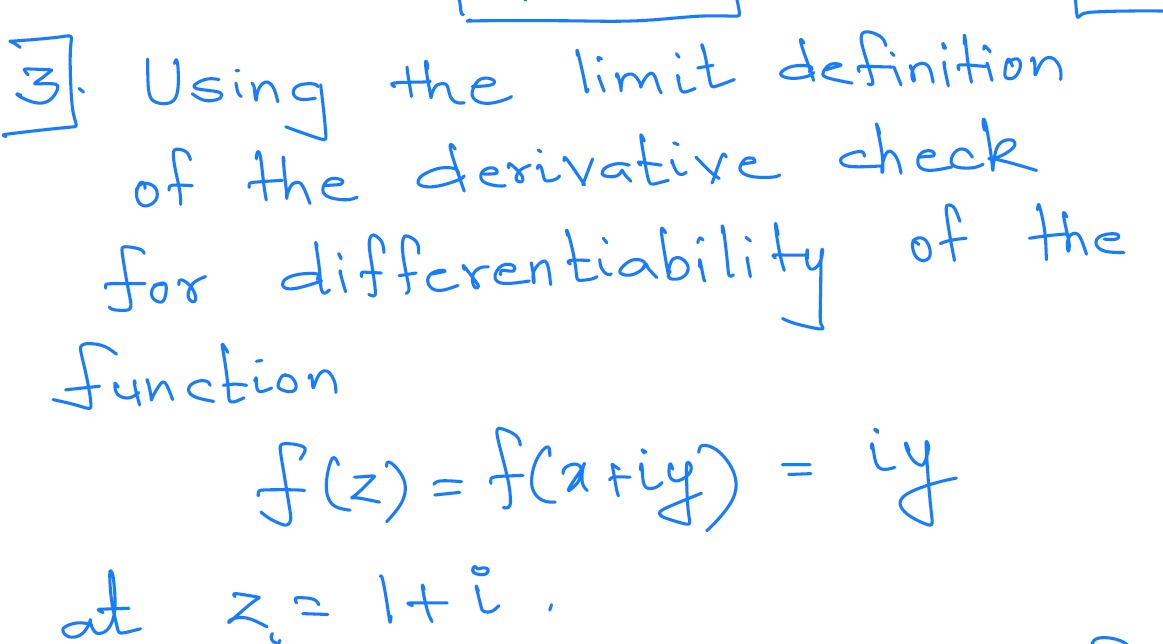 3. Using the limit definition
of the derivative check
for differentiability of the
function
f(z) = f(x+iy) = iy
at z = 1+i.